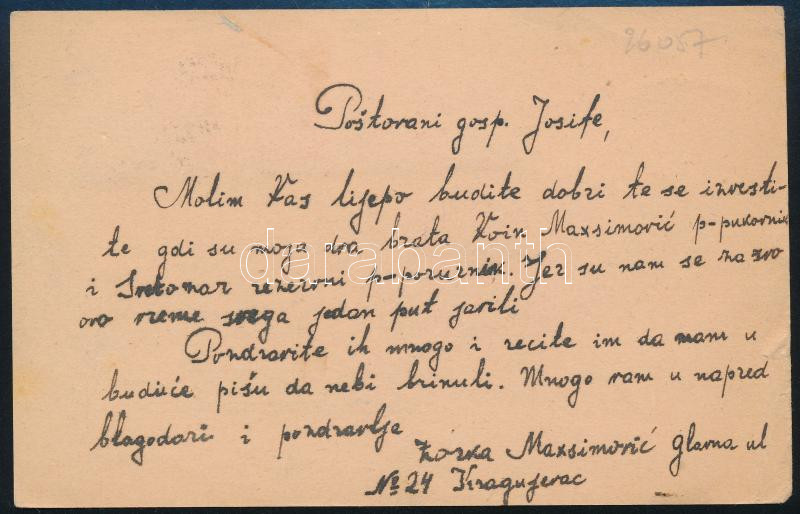 96057
Poštovani gosp. Josife,
Molim Vas lijepo budite dobri te se izvesti-
te gdi su moja dva brata Voin Maxsimović p-pukovnik
i Svetomar rezervni p-poručnik. Jer su nam se za svo
ovo vreme svega jedan put javili
Pozdravite ih mnogo i recite im da nam u
buduće pišu da nebi brinuli. Mnogo vam u napred
blagodari i pozdravlja
Zorka Maxsimović glavna ul
№ 24 Kragujevac
darabanth